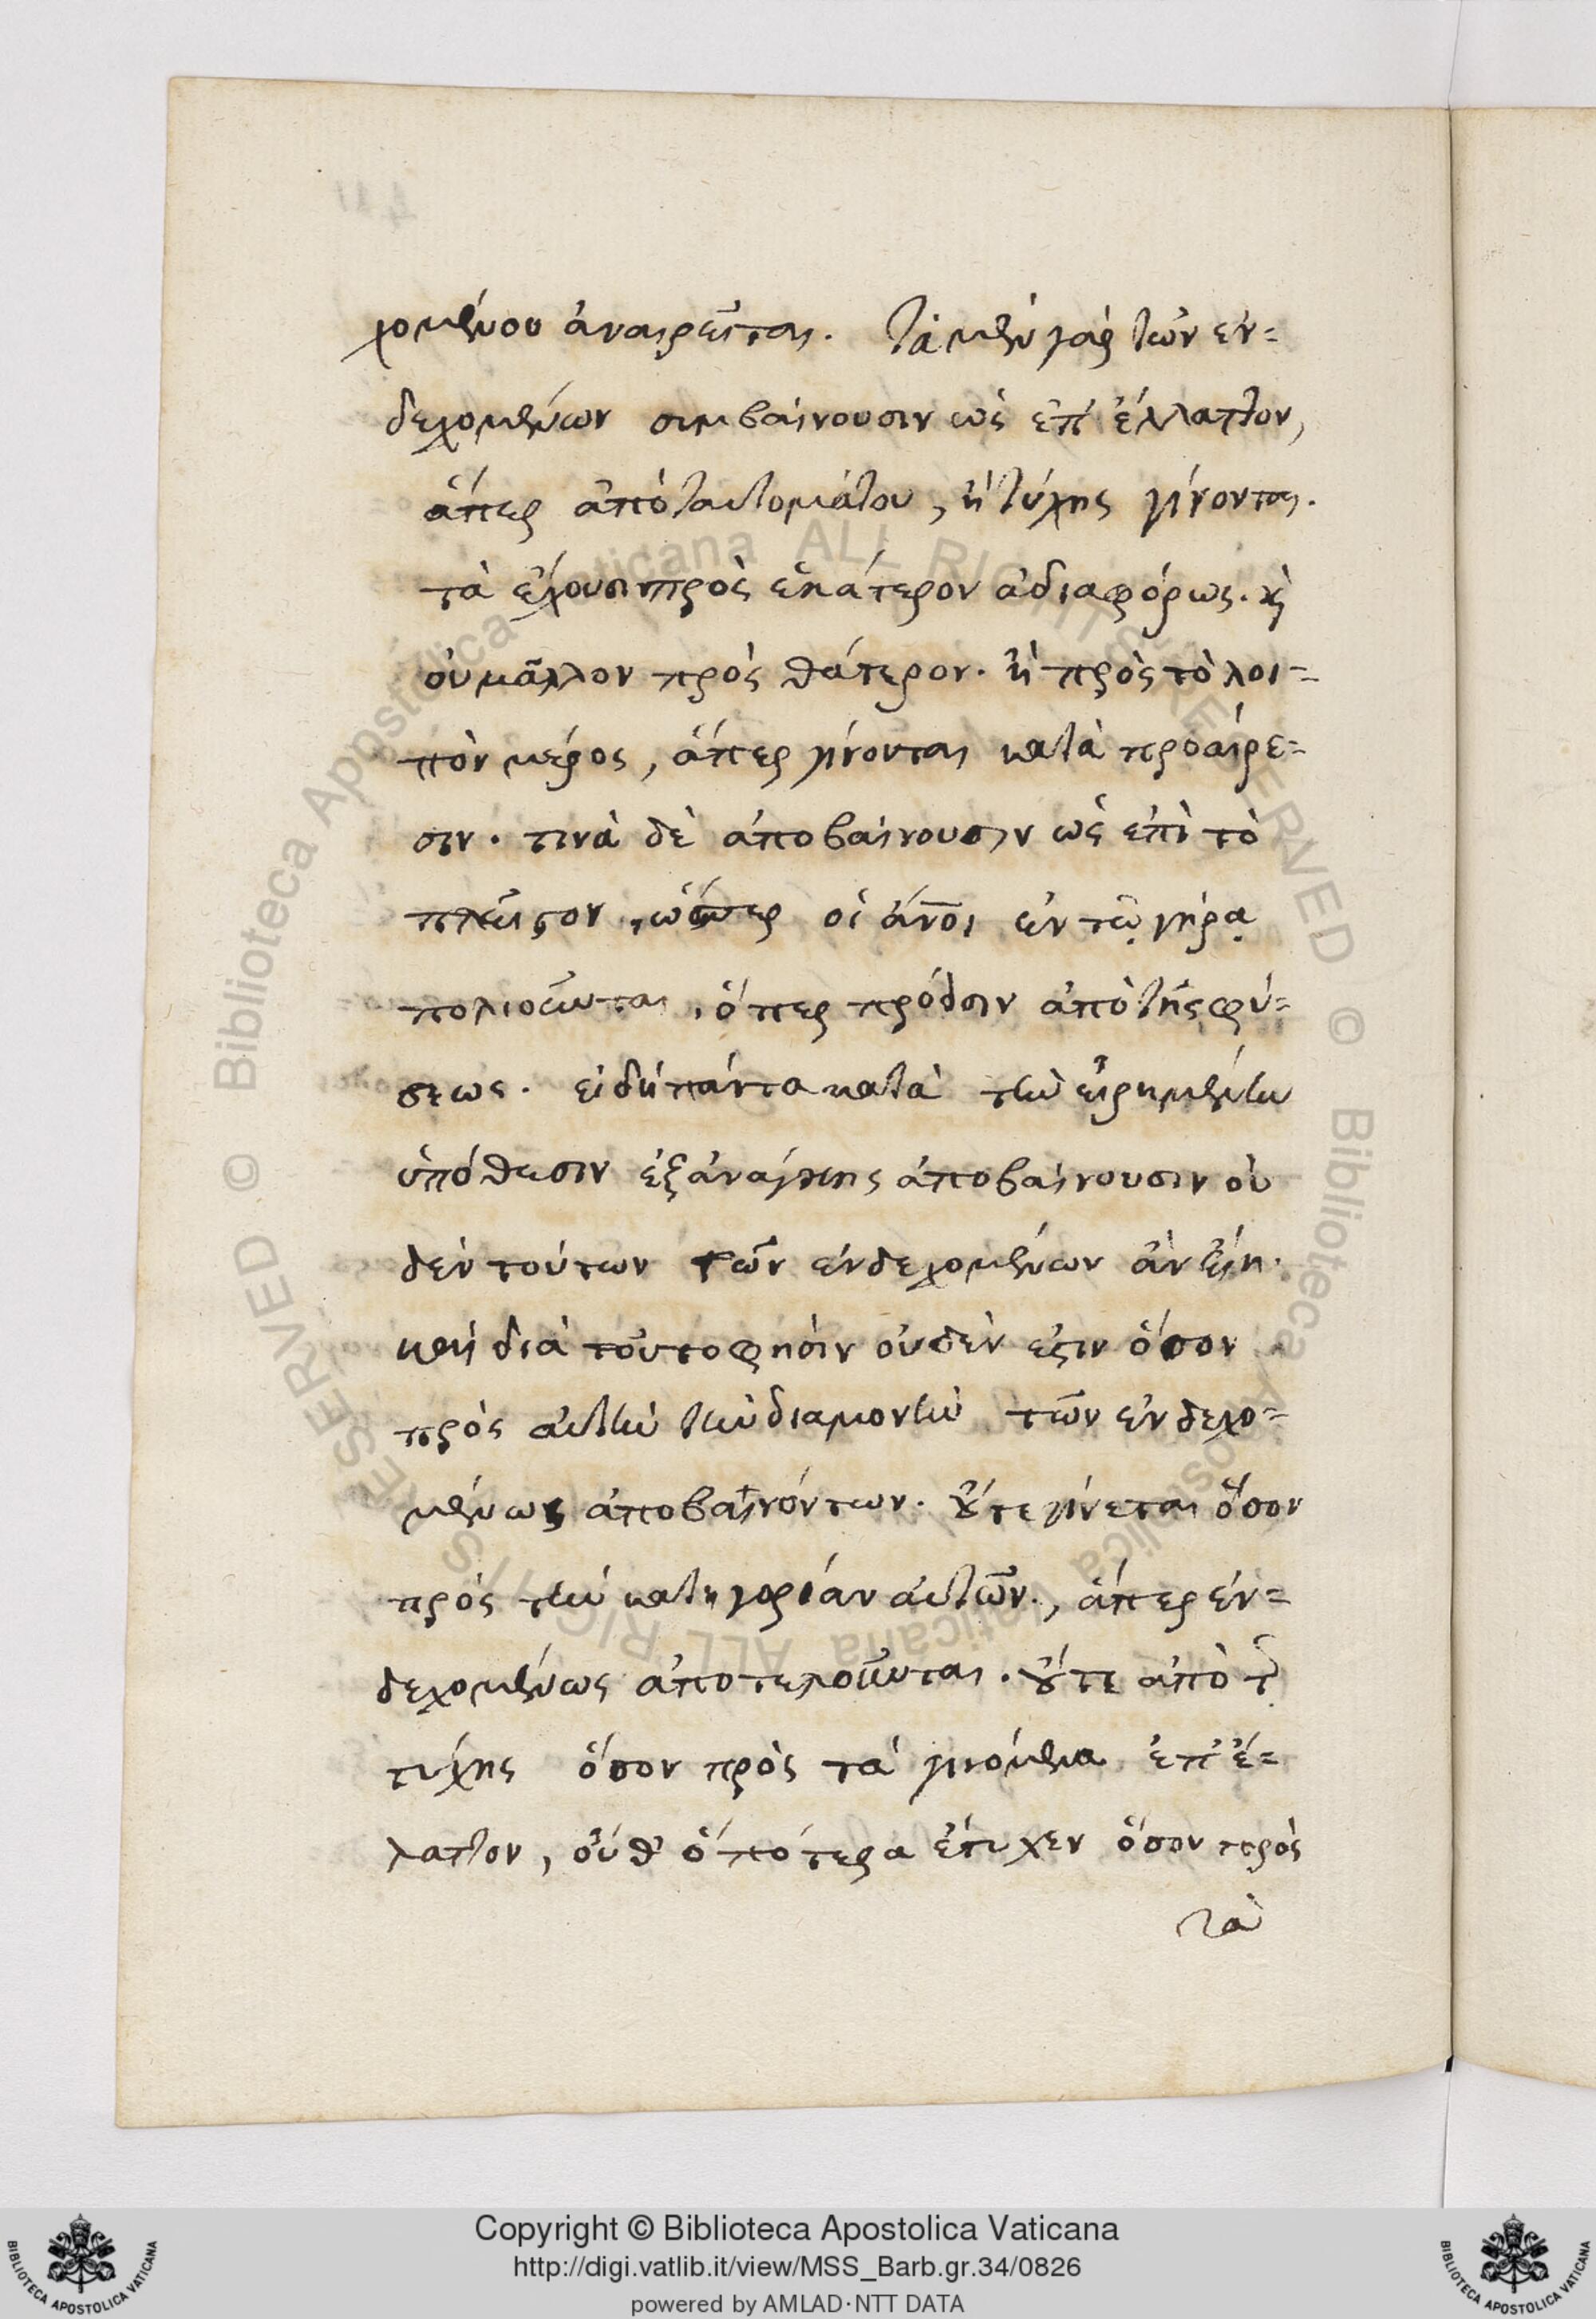 χομένου ἀναιρεῖται. Τὰ μὲν γὰρ τῶν ἐν=
δεχομένων συμβαίνουσιν ὡς ἐπ' ἔλλαττον,
ἅπερ ἀπὸ ταυτομάτου, ἢ τύχης γίνονται.
τὰ ἔχουσι πρὸς ἑκάτερον ἀδιαφόρως. ϗ
οὐ μᾶλλον πρὸς θάτερον. ἢ πρὸς τὸ λοι=
πὸν μέρος, ἅπερ γίνονται κατὰ προαίρε=
σιν. τινὰ δὲ ἀποβαίνουσιν ὡς ἐπὶ τὸ
πλεῖϛον, ὥσπερ οἱ ἄνοι ἐν τῷ γήρᾳ
πολιοῦνται, ὅπερ πρόεισιν ἀπὸ τῆς φύ=
σεως. εἰ δὴ πάντα κατὰ τὴν εἰρημένην
ὑπόθεσιν ἐξ ἀνάγκης ἀποβαίνουσιν οὐ
δὲν τούτων τῶν ἐνδεχομένων ἂν εἴη.
καὶ διὰ τοῦτο φησὶν οὐδέν ἐϛιν ὅσον
πρὸς αὐτὴν τὴν διαμονὴν τῶν ἐνδεχο=
μένως ἀποβαινόντων. ȣ̓́τε γίνεται ὅσον
πρὸς τὴν κατηγορίαν αὐτῶν., ἅπερ ἐν=
δεχομένως ἀποτελοῦνται. ȣ̓́τε ἀπὸ τ̑
τύχης ὅσον πρὸς τὰ γινόμενα ἐπ' ἔ=
λαττον, οὔθ' ὁπότερα ἔτυχεν ὅσον πρὸς
τὰ
Copyright © Biblioteca Apostolica Vaticana
http://digi.vatlib.it/view/MSS_Barb.gr.34/0826
powered by AMLAD·NTT DATA